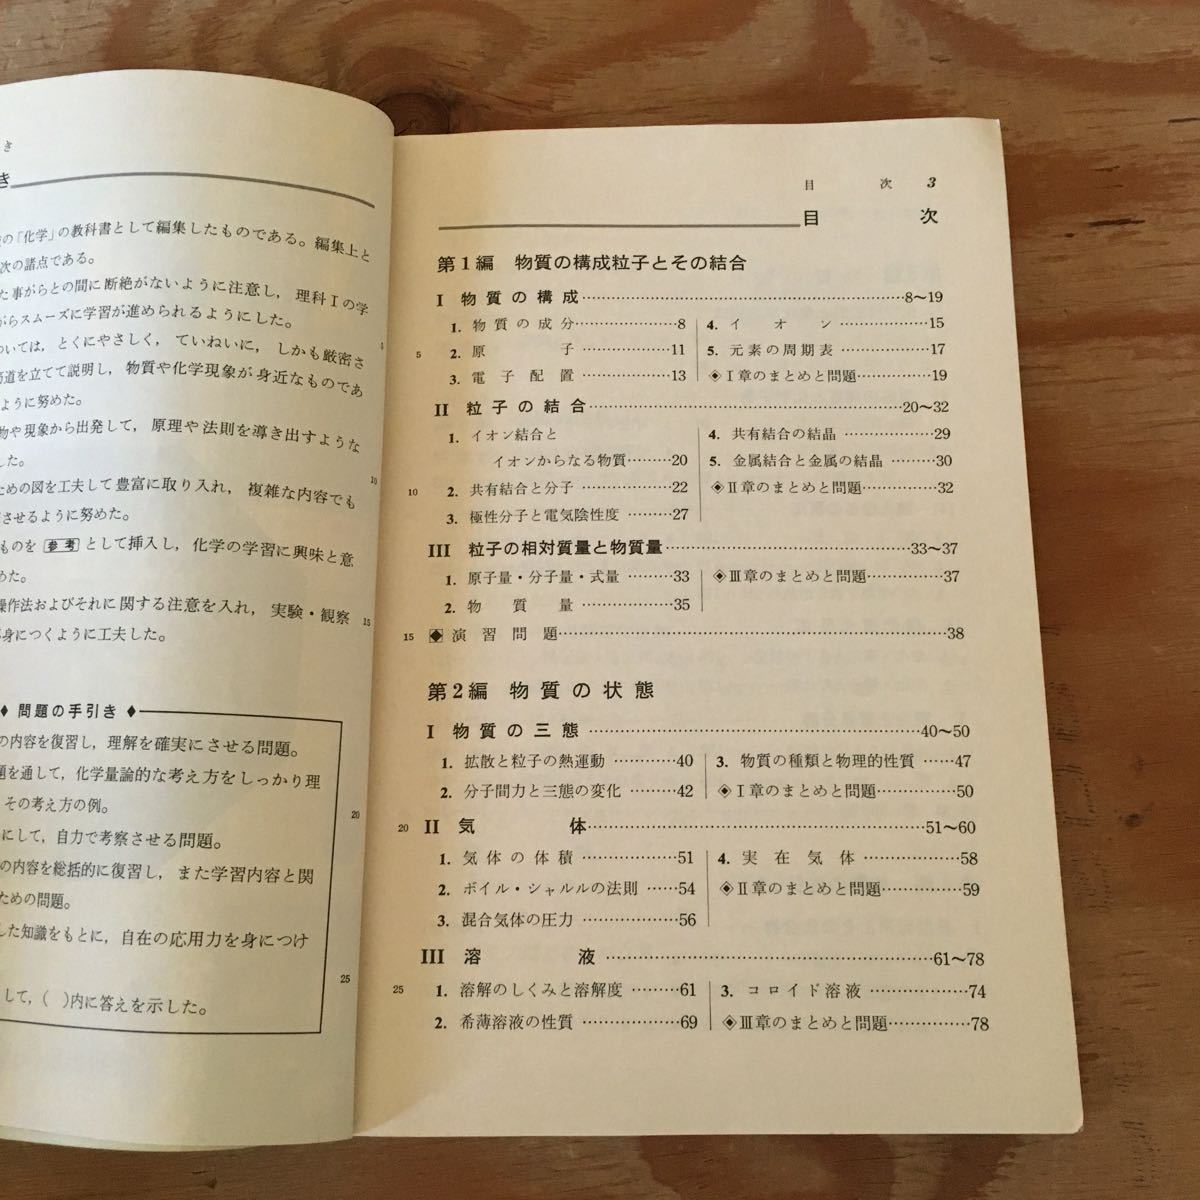 き
き
の「化学」の教科書として編集したものである。編集上と
次の諸点である。
た事がらとの間に断絶がないように注意し，理科Ⅰの学
がらスムーズに学習が進められるようにした。
ついては，とくにやさしく，ていねいに，しかも厳密さ
筋道を立てて説明し，物質や化学現象が身近なものであ
ように努めた。
物や現象から出発して，原理や法則を導き出すような
した。
ための図を工夫して豊富に取り入れ，複雑な内容でも
させるように努めた。
ものを 参考 として挿入し，化学の学習に興味と意
めた。
操作法およびそれに関する注意を入れ，実験・観察
身につくように工夫した。
5
10
15
◆ 問題の手引き ◆
の内容を復習し，理解を確実にさせる問題。
題を通して，化学量論的な考え方をしっかり理
その考え方の例。
にして，自力で考察させる問題。
の内容を総括的に復習し，また学習内容と関
ための問題。
した知識をもとに，自在の応用力を身につけ
して，(　)内に答えを示した。
20
25
目　次 3
目　次
第1編 物質の構成粒子とその結合
Ⅰ 物質の構成……8〜19
1. 物質の成分……8
5 2. 原子……11
3. 電子配置……13
4. イオン……15
5. 元素の周期表……17
◈Ⅰ章のまとめと問題……19
Ⅱ 粒子の結合……20〜32
1. イオン結合と
イオンからなる物質……20
10 2. 共有結合と分子……22
3. 極性分子と電気陰性度……27
4. 共有結合の結晶……29
5. 金属結合と金属の結晶……30
◈Ⅱ章のまとめと問題……32
Ⅲ 粒子の相対質量と物質量……33〜37
1. 原子量・分子量・式量……33
2. 物質量……35
◈Ⅲ章のまとめと問題……37
15 ◈ 演習問題……38
第2編 物質の状態
Ⅰ 物質の三態……40〜50
1. 拡散と粒子の熱運動……40
2. 分子間力と三態の変化……42
3. 物質の種類と物理的性質……47
◈Ⅰ章のまとめと問題……50
20 Ⅱ 気体……51〜60
1. 気体の体積……51
2. ボイル・シャルルの法則……54
3. 混合気体の圧力……56
4. 実在気体……58
◈Ⅱ章のまとめと問題……59
Ⅲ 溶液……61〜78
25 1. 溶解のしくみと溶解度……61
2. 希薄溶液の性質……69
3. コロイド溶液……74
◈Ⅲ章のまとめと問題……78